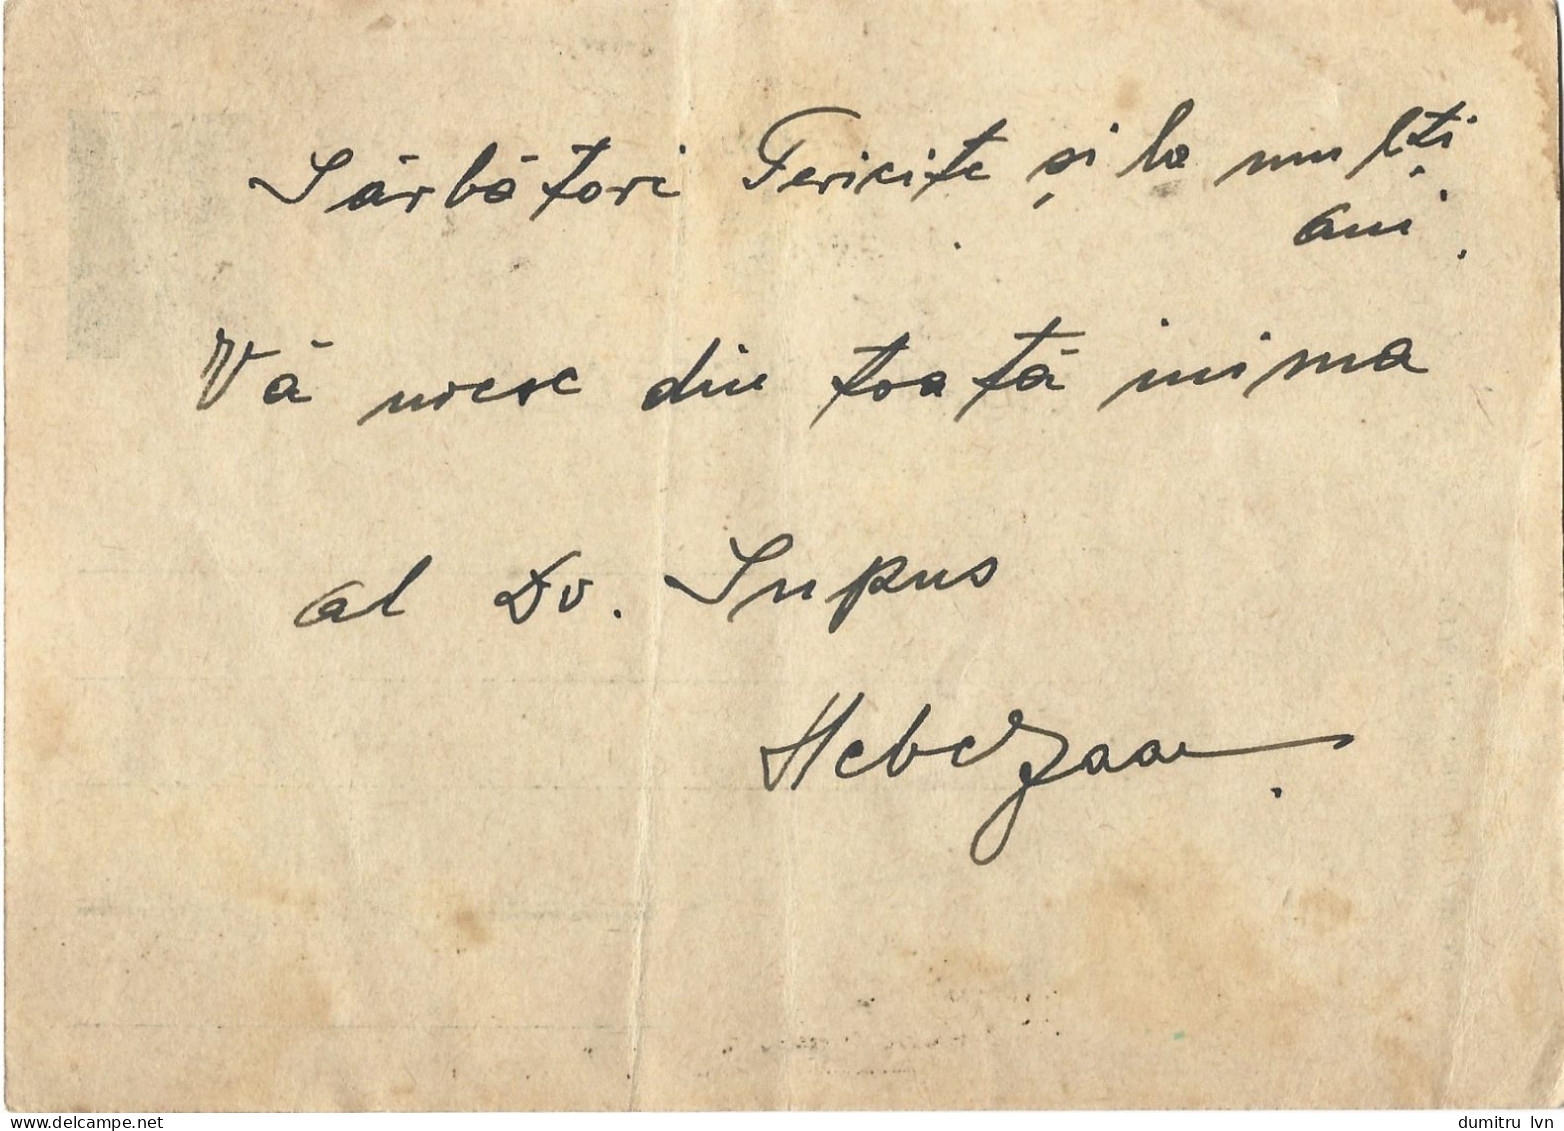 Sărbători Fericite și la mulți
ani.
Vă uresc din toată inima
al Dv. Supus
www.delcampe.net
dumitru lvn